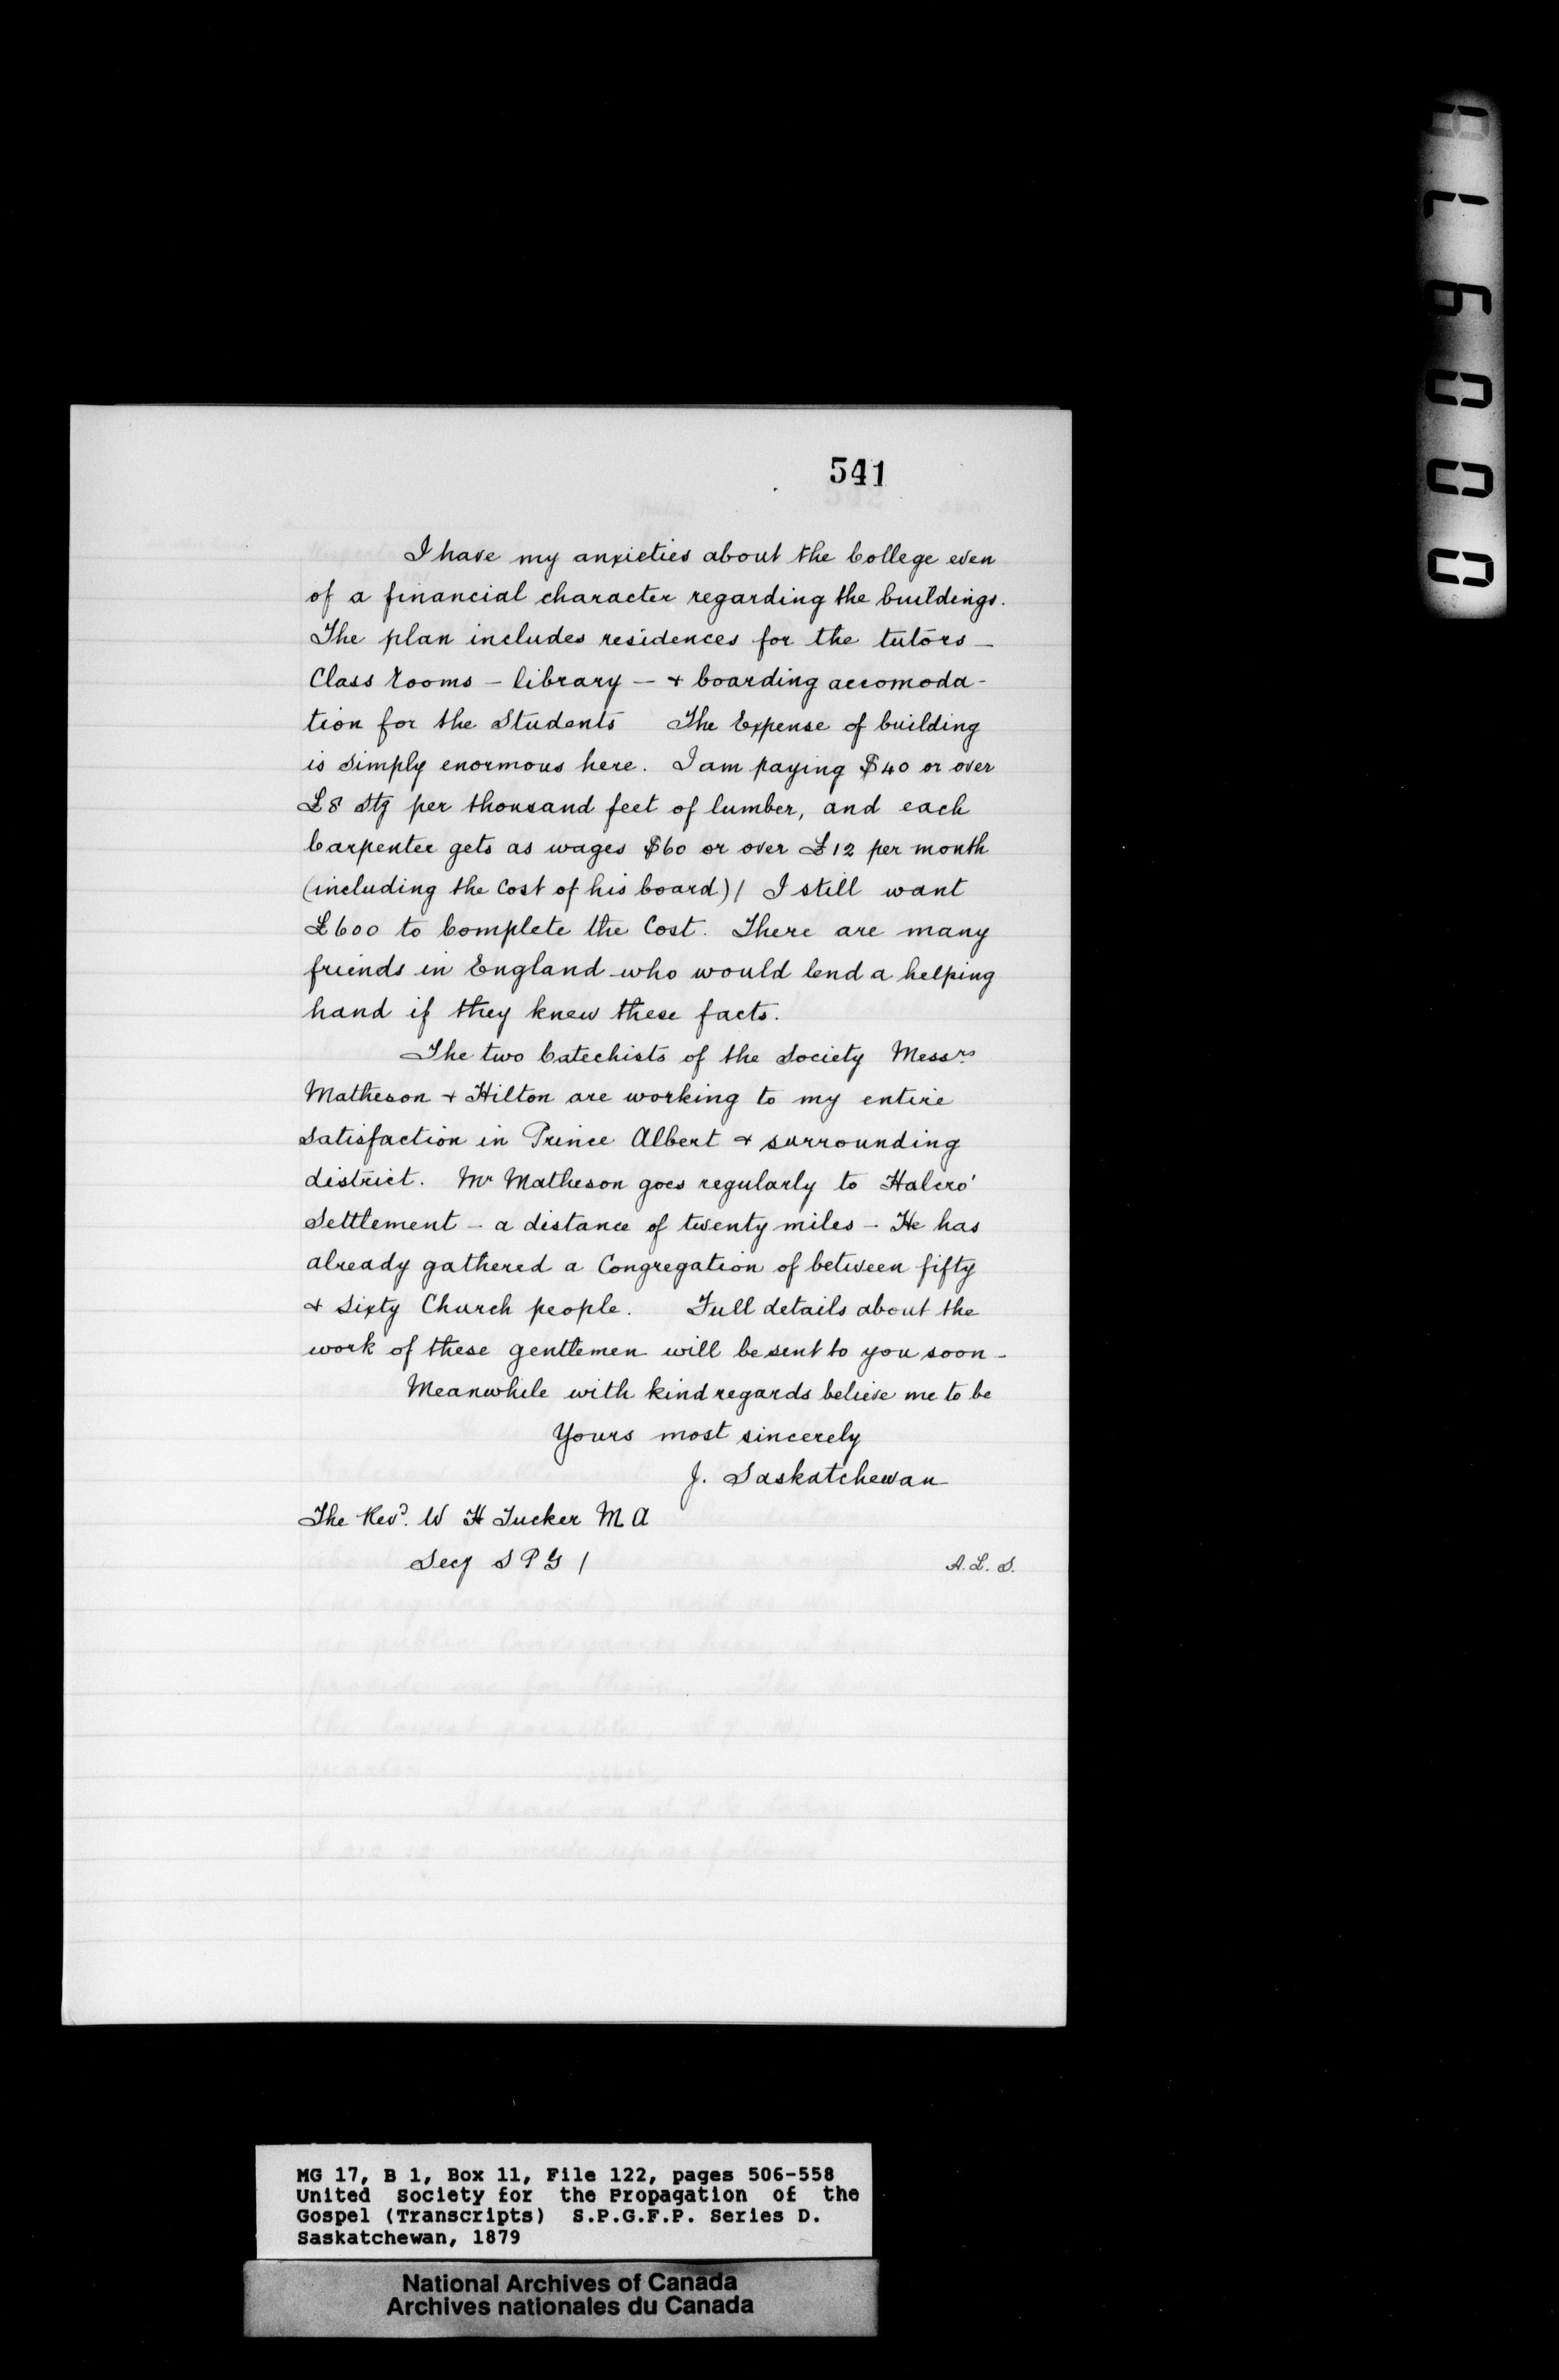 541
I have my anxieties about the College even
of a financial character regarding the buildings.
The plan includes residences for the tutors —
Class Rooms — library — & boarding accomoda-
tion for the Students The Expense of building
is simply enormous here. I am paying $40 or over
£8 Stg per thousand feet of lumber, and each
Carpenter gets as wages $60 or over £12 per month
(including the Cost of his board)/ I still want
£600 to Complete the Cost. There are many
friends in England who would lend a helping
hand if they knew these facts.
The two Catechists of the Society Messrs
Matheson & Hilton are working to my entire
Satisfaction in Prince Albert & surrounding
district. Mr Matheson goes regularly to Halcro'
Settlement — a distance of twenty miles — He has
already gathered a Congregation of between fifty
& Sixty Church people. Full details about the
work of these gentlemen will be sent to you soon —
Meanwhile with kind regards believe me to be
Yours most sincerely
J. Saskatchewan
The Revd. W H Tucker M A
Secy S P G /
A. L. S.
MG 17, B 1, Box 11, File 122, pages 506-558
United Society for the Propagation of the
Gospel (Transcripts) S.P.G.F.P. Series D.
Saskatchewan, 1879
National Archives of Canada
Archives nationales du Canada